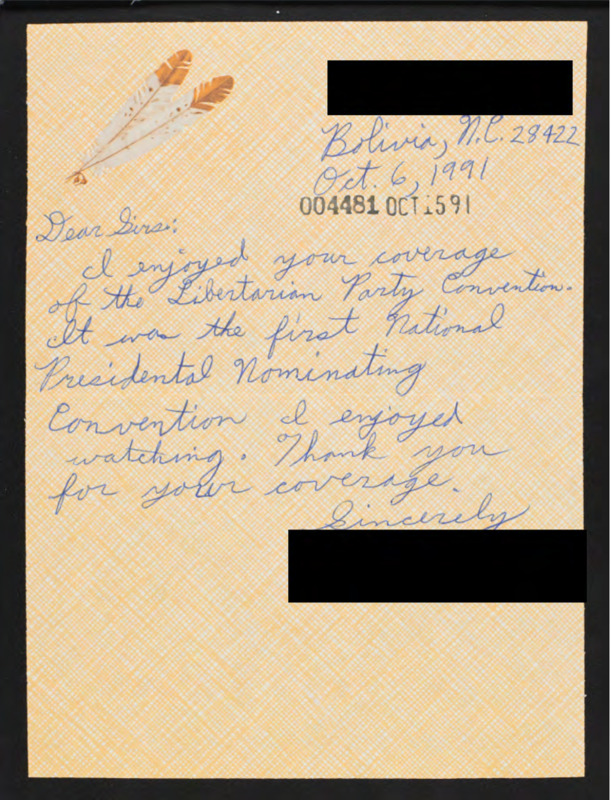 Bolivia, N.C. 28422
Oct. 6, 1991
004481 OCT 15 91
Dear Sirs:
I enjoyed your coverage
of the Libertarian Party Convention.
It was the first National
Presidental Nominating
Convention I enjoyed
watching. Thank you
for your coverage.
Sincerely